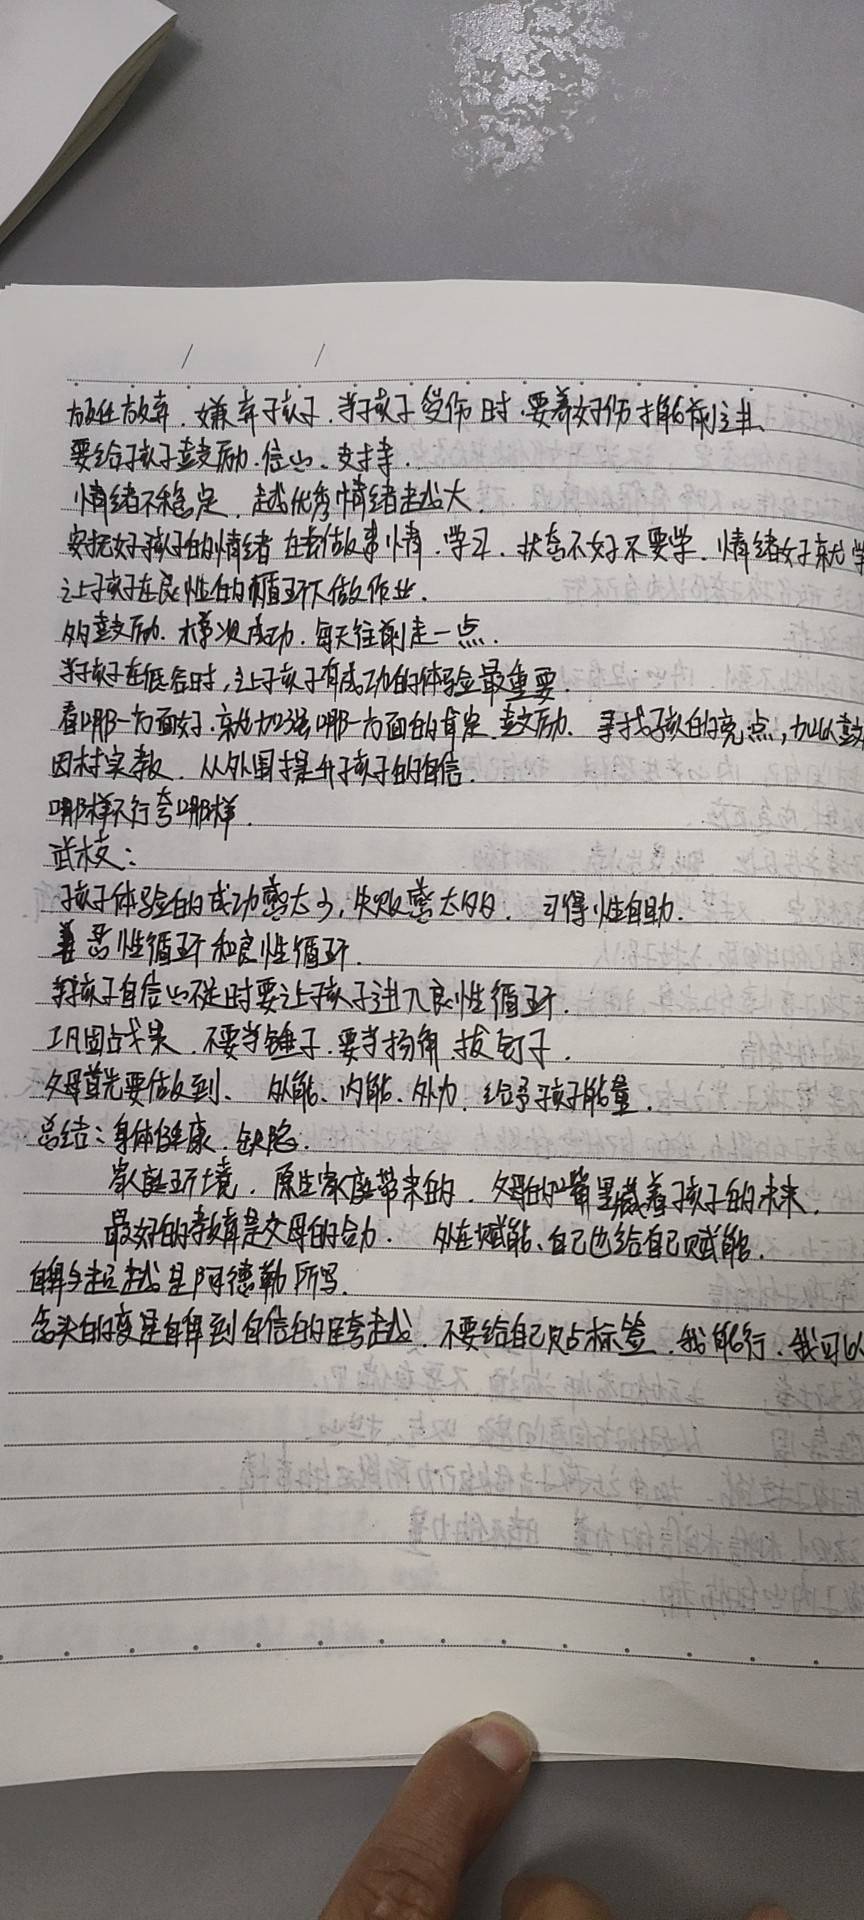 放任放弃、嫌弃孩子.当孩子受伤时.要养好伤才能前进.
要给孩子鼓励.信心、支持.
情绪不稳定、越优秀情绪越大.
安抚好孩子的情绪 在去做事情.学习.状态不好不要学.情绪好就学
让孩子在良性的循环下做作业.
多鼓励.梯次成功.每天往前走一点.
当孩子在低谷时,让孩子有成功的体验最重要.
看哪一方面好.就加强哪一方面的肯定.鼓励. 寻找孩的亮点,加以鼓
因材实教.从外围提升孩子的自信.
哪样不行夸哪样.
孩子体验的成功感太少,失败感太多. 习得性自助.
恶性循环和良性循环.
当孩子自信心不足时要让孩子进入良性循环.
巩固战果.不要当锤子.要当扬角拔钉子.
父母首先要做到、外能、内能、外力.给予孩子能量.
总结:身体健康.缺陷.
家庭环境.原生家庭带来的.父母的嘴里藏着孩子的未来.
最好的教育是父母的合力. 外在赋能、自己也给自己赋能.
自卑与超越是阿德勒所写.
念头的改变是自卑到自信的跨越.不要给自己贴标签.我能行.我可以